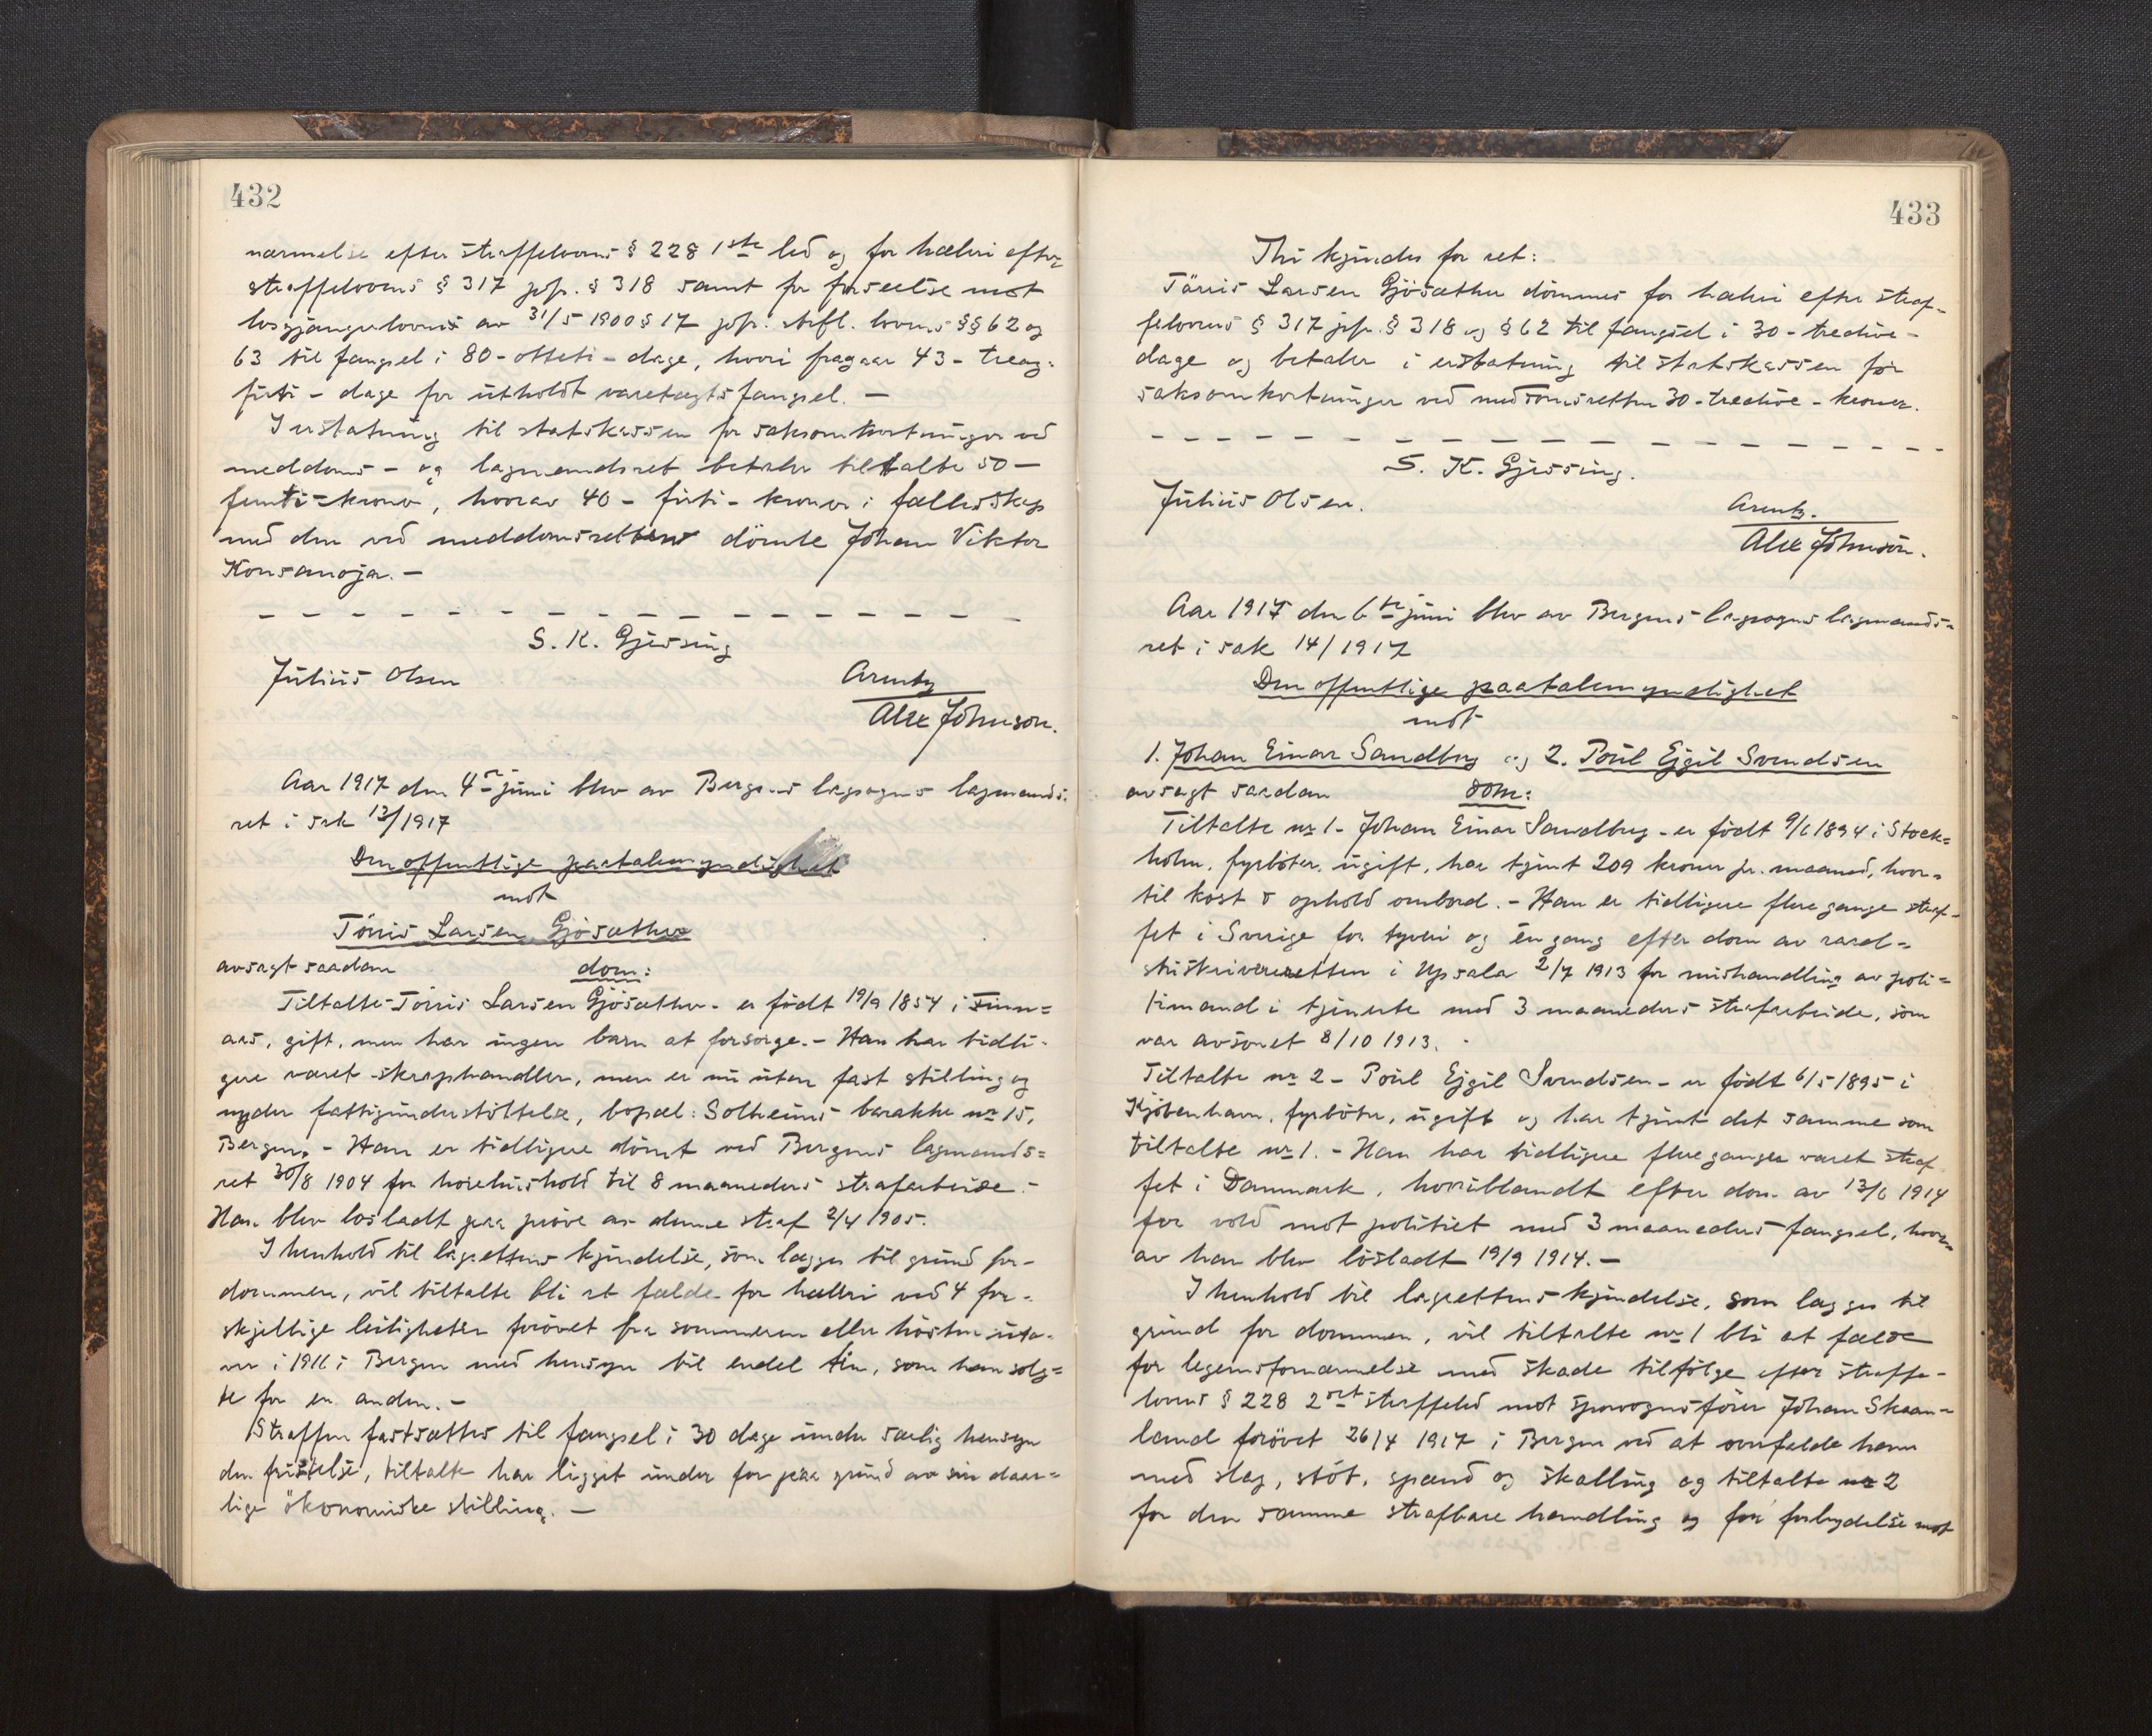 432
nærmelse efter straffelovens § 228 1ste led og for hæleri efter
straffelovens § 317 jvfr. § 318 samt for forseelse mot
løsgjængerlovens av 31/5 1900 § 17 jvfr. strfl. lovens §§ 62 og
63 til fængsel i 80 - otteti - dage, hvori fragaar 43 - treog-
firti - dage for utholdt varetægtsfængsel. —
I erstatning til statskassen for saksomkostninger ved
meddoms - og lagmandsret betaler tiltalte 50 —
femti - kroner, hvorav 40 - firti - kroner i fællesskap
med den ved meddomsretten dömte Johan Viktor
Konsanoja. —
S. K. Gjessing
Julius Olsen
Arentz
Alex Johnson.
Aar 1917 den 4de juni blev av Bergens lagsogns lagmands-
ret i sak 13/1917
Den offentlige paatalemyndighet
mot
Törris Larsen Gjösæther
avsagt saadan dom:
Tiltalte - Törris Larsen Gjösæther - er födt 19/9 1854 i Finn=
aas, gift, men har ingen barn at forsørge. - Han har tidli-
gere været skraphandler, men er nu uten fast stilling og
nyder fattigunderstöttelse, bopæl: Solheims barakke nr 15,
Bergen. - Han er tidligere dömt ved Bergens lagmands=
ret 30/8 1904 for horehushold til 8 maaneders strafarbeide. -
Han blev løsladt paa pröve av denne straf 2/4 1905.
I henhold til lagrettens kjendelse, som lægges til grund for
dommen, vil tiltalte bli at fælde for hæleri ved 4 for-
skjellige leiligheter forövet fra sommeren eller hösten uta-
ver i 1916 i Bergen med hensyn til endel tin, som han solg=
te for en anden. —
Straffen fastsættes til fængsel i 30 dage under særlig hensyn
den fristelse, tiltalte har ligget under for paa grund av sin daar=
lige ökonomiske stilling. —
433
Thi kjendes for ret:
Törris Larsen Gjösæther dömmes for hæleri efter straf-
felovens § 317 jvfr. § 318 og § 62 til fængsel i 30 - tredive -
dage og betaler i erstatning til statskassen for
saksomkostninger ved meddomsretten 30 - tredive - kroner.
S. K. Gjessing.
Julius Olsen.
Arentz.
Alex Johnson.
Aar 1917 den 6te juni blev av Bergens lagsogns lagmands-
ret i sak 14/1917
Den offentlige paatalemyndighet
mot
1. Johan Einar Sandberg og 2. Poul Ejgil Svendsen
avsagt saadan dom:
Tiltalte nr 1 - Johan Einar Sandberg - er födt 9/6 1894 i Stock=
holm, fyrböter, ugift, har tjent 209 kroner pr. maaned, hvor-
til kost & ophold ombord. - Han er tidligere flere gange straf-
fet i Sverige for tyveri og én gang efter dom av raad-
stuskriverretten i Upsala 2/7 1913 for mishandling av poli=
timand i tjeneste med 3 maaneders strafarbeide, som
var avsonet 8/10 1913.
Tiltalte nr 2 - Poul Ejgil Svendsen - er födt 6/5 1895 i
Kjöbenhavn, fyrböter, ugift og har tjent det samme som
tiltalte nr 1. - Han har tidligere flere ganger været straf
fet i Danmark, hvoriblandt efter dom av 13/6 1914
for vold mot politiet med 3 maaneders fængsel, hvor-
av han blev lösladt 19/9 1914. —
I henhold til lagrettens kjendelse, som lægges til
grund for dommen, vil tiltalte nr 1 bli at fælde
for legemsfornærmelse med skade tilfölge efter straffe-
lovens § 228 2det straffeled mot sporvognsförer Johan Skaan-
land forövet 26/4 1917 i Bergen ved at overfalde ham
med slag, stöt, spænd og skalling og tiltalte nr 2
for den samme strafbare handling og for forbrydelse mot